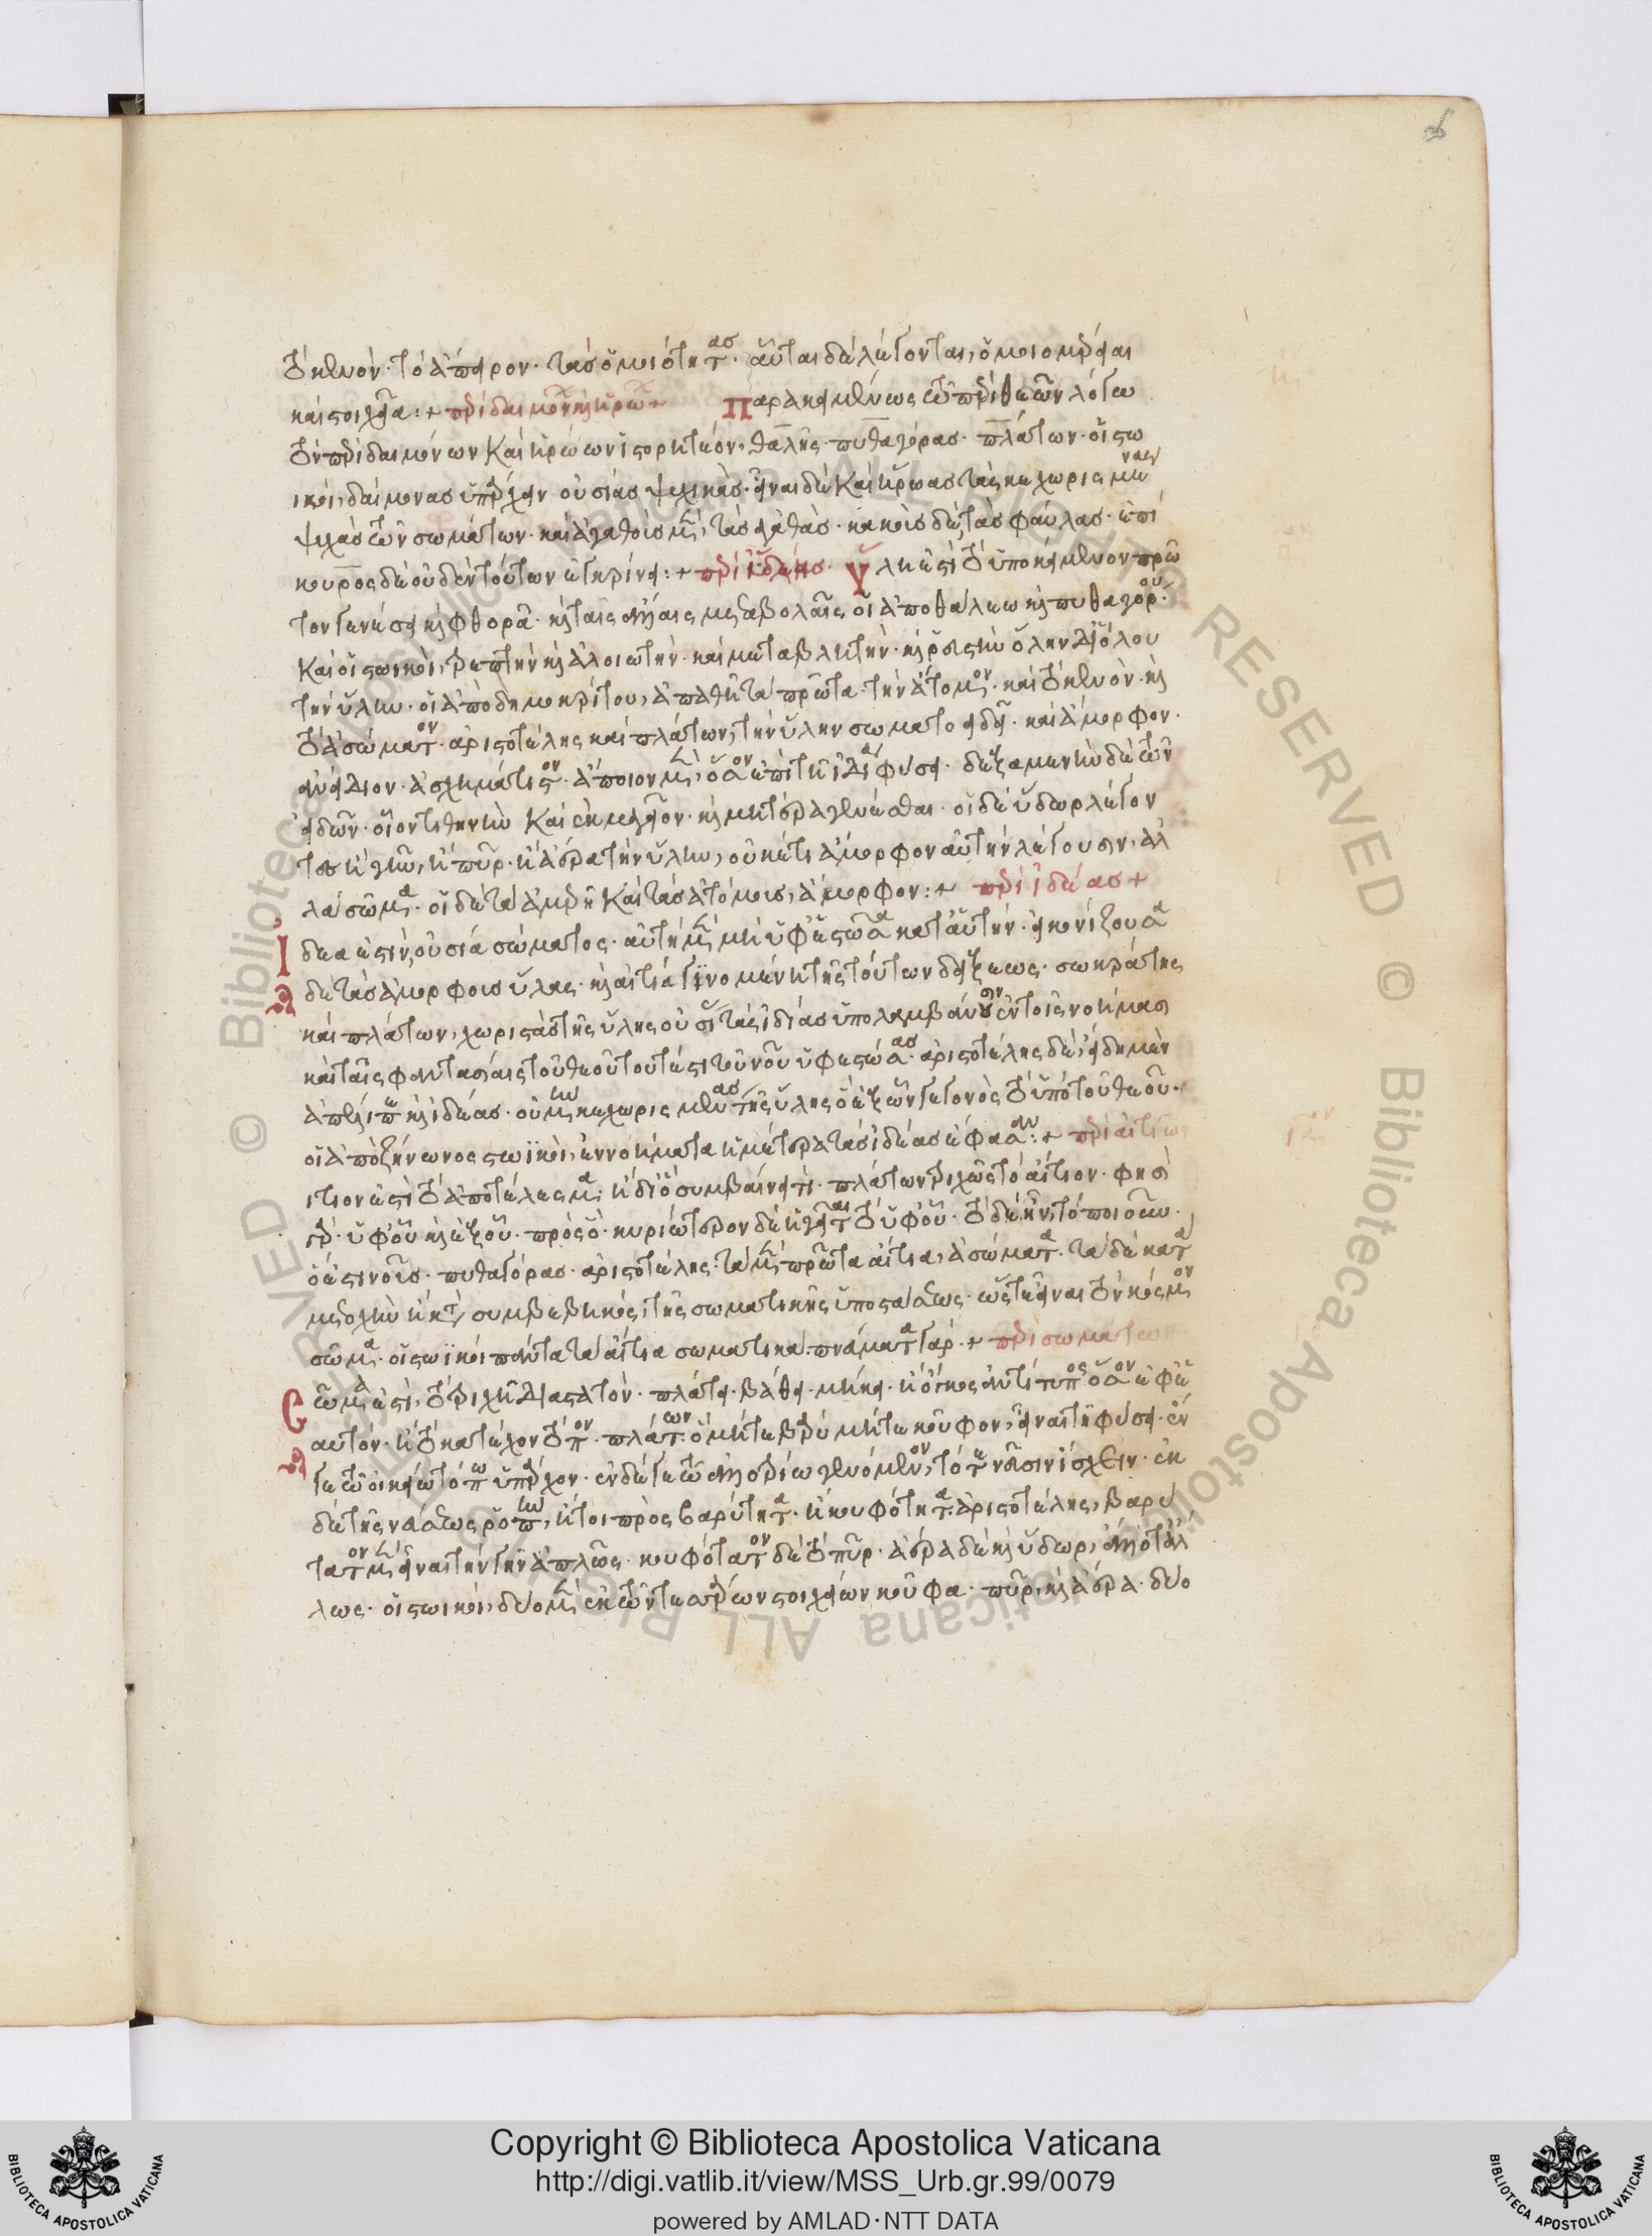 τὸ κενὸν· τὸ ἄπειρον· τὰς ὁμοιότητας· αὗται δὲ λέγονται, ὁμοιομέρειαι
καὶ στοιχεῖα :+ περὶ δαιμόνων καὶ ἡρώων + Παρακειμένως τῶ περὶ θεῶν λόγω
τὸν περὶ δαιμόνων καὶ ἡρώων ἱστορητέον, θαλῆς· πυθαγόρας· πλάτων· οἱ στω
ικοὶ, δαίμονας ὑπάρχειν οὐσίας ψυχικάς· εἶναι δὲ καὶ ἥρωας τὰς κεχωρισμένας
ψυχὰς τῶν σωμάτων· καὶ ἀγαθοὺς μὲν, τὰς ἀγαθάς· κακοὺς δὲ, τὰς φαύλας· ἐπί
κουρος δὲ οὐδὲν τούτων ἐγκρίνει :+ περὶ ὕλης· Ὕλη ἐστὶ τὸ ὑποκείμενον πρώ
τον γενέσει καὶ φθορᾶ· καὶ ταῖς ἄλλαις μεταβολαῖς, οἱ ἀπὸ θάλεω καὶ πυθαγόρου·
καὶ οἱ στωικοὶ, τρεπτὴν καὶ ἀλοιωτὴν· καὶ μεταβλητὴν· καὶ ῥευστὴν ὅλην δι' ὅλου
τὴν ὕλην· οἱ ἀπὸ δημοκρίτου, ἀπαθῆ τὰ πρῶτα· τὴν ἄτομον· καὶ τὸ κενὸν· καὶ
τὸ ἀσώματον· ἀριστοτέλης καὶ πλάτων, τὴν ὕλην σωματοειδῆ· καὶ ἄμορφον·
ἀνείδεον· ἀσχημάτιστον· ἄποιον μὲν, ὅσον ἐπὶ τῆ ἰδία φύσει· δεξαμενὴν δὲ τῶν
εἰδῶν· οἷον τιθήνην καὶ ἐκμαγεῖον· καὶ μητέρα γενέσθαι· οἱ δὲ ὕδωρ λέγον
τες ἢ γῆν, ἢ πῦρ· ἢ ἀέρα τὴν ὕλην, οὐκέτι ἄμορφον αὐτὴν λέγουσιν, ἀλ
λὰ σῶμα· οἱ δὲ τὰ ἀμερῆ καὶ τὰς ἀτόμους, ἄμορφον :+ περὶ ἰδέας +
Ἰδέα ἐστὶν, οὐσία σώματος· αὐτὴ μὲν μὴ ὑφεστῶσα κατ' αὐτήν· εἰκονίζουσα
δὲ τὰς ἀμόρφους ὕλας· καὶ αἰτία γινομένη τῆς τούτων δείξεως· σωκράτης
καὶ πλάτων, χωριστὰς τῆς ὕλης οὐσίας τὰς ἰδέας ὑπολαμβάνουσιν ἐν τοῖς νοήμασι
καὶ ταῖς φαντασίαις τοῦ θεοῦ τουτέστι τοῦ νοῦ ὑφεστώσας· ἀριστοτέλης δὲ, εἴδη μὲν
ἀπέλιπε καὶ ἰδέας· οὐ μὴν κεχωρισμένας τῆς ὕλης ὁ ἐξ ὧν γεγονὸς τὸ ὑπὸ τοῦ θεοῦ·
οἱ ἀπὸ ζήνωνος στωϊκοὶ, ἐννοήματα ἡμέτερα τὰς ἰδέας ἔφασαν :+ περὶ αἰτίων
ίτιον ἐστὶ τὸ ἀποτέλεσμα, ἢ δι' ὃ συμβαίνει τι· πλάτων τριχῶς τὸ αἴτιον· φησὶ
γάρ· ὑφ' οὗ καὶ ἐξ οὗ· πρὸς ὅ· κυριώτερον δὲ ἡγεῖται τὸ ὑφ' οὗ· τὸ δὲ ἦν, τὸ ποιοῦν·
ὅ ἐστι νοῦς· πυθαγόρας· ἀριστοτέλης· τὰ μὲν πρῶτα αἴτια, ἀσώματα· τὰ δὲ κατὰ
μετοχὴν ἢ κατὰ συμβεβηκὸς, τῆς σωματικῆς ὑποστάσεως· ὥστε εἶναι τὸν κόσμον
σῶμα· οἱ στωϊκοὶ πάντα τὰ αἴτια σωματικά· πνεύματα γάρ·+ περὶ σωμάτων
Σῶμα ἐστὶ, τὸ τριχῆ διαστατόν· πλάτει· βάθει· μήκει· ἢ ὄγκος ἀντίτυπος ὅσον ἐφ' ἑ
αυτόν· ἢ τὸ κατέχον τόπον· πλάτων· ὁ μήτε βαρὺ μήτε κοῦφον, εἶναι τῆ φύσει· ἔν
γε τῶ οἰκείω τόπω ὑπάρχον· ἐν δέ γε τῶ ἀλλοτρίω γενόμενον, τότε νεῦσιν ἴσχειν· ἐκ
δὲ τῆς νεύσεως ῥοπὴν, ἤτοι πρὸς βαρύτητα· ἢ κουφότητα· ἀριστοτέλης, βαρύ
τατον μὲν εἶναι τὴν γῆν ἁπλῶς· κουφότατον δὲ τὸ πῦρ· ἀέρα δὲ καὶ ὕδωρ, ἄλλοτ' ἄλ
λως· οἱ στωικοὶ, δύο μὲν ἐκ τῶν τεσσάρων στοιχείων κοῦφα· πῦρ, καὶ ἀέρα· δύο
Copyright © Biblioteca Apostolica Vaticana
http://digi.vatlib.it/view/MSS_Urb.gr.99/0079
powered by AMLAD·NTT DATA